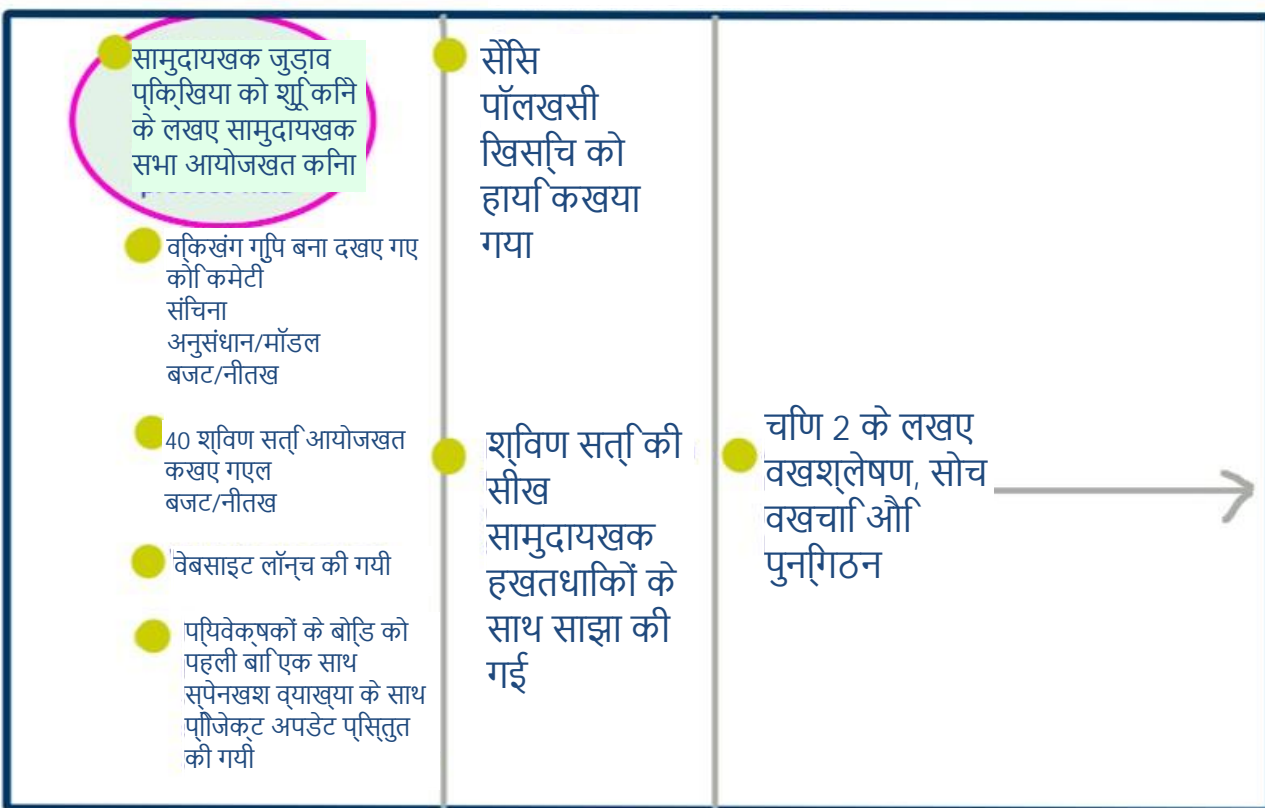 सामुदायखक जुड़ाव
प्किखिया को शुूकिनेि
के लखए सामुदायखक
सभा आयोजखत कनिा
वकिखंग गु्पि बना दखए गए
कोि कमेटी
संचिना
अनुसंधान/मॉडल
बजट/नीतख
40 श्विण सत्ि आयोजखत
कखए गएल
बजट/नीतख
वेबसाइट लॉन्च की गयी
प्यिवेक्षकों के बोि्ड को
पहली बाि एक साथ
स्पेनखश व्याख्या के साथ
प्ोिजेक्ट अपडेट प्सि्तुत
की गयी
सेंसि
पॉलखसी
खिस्चि को
हायि कखया
गया
श्विण सत्ि की
सीख
सामुदायखक
हखतधाकिों के
साथ साझा की
गई
चणि 2 के लखए
वखश्लेषण, सोच
वखचाि औि
पुन्गिठन